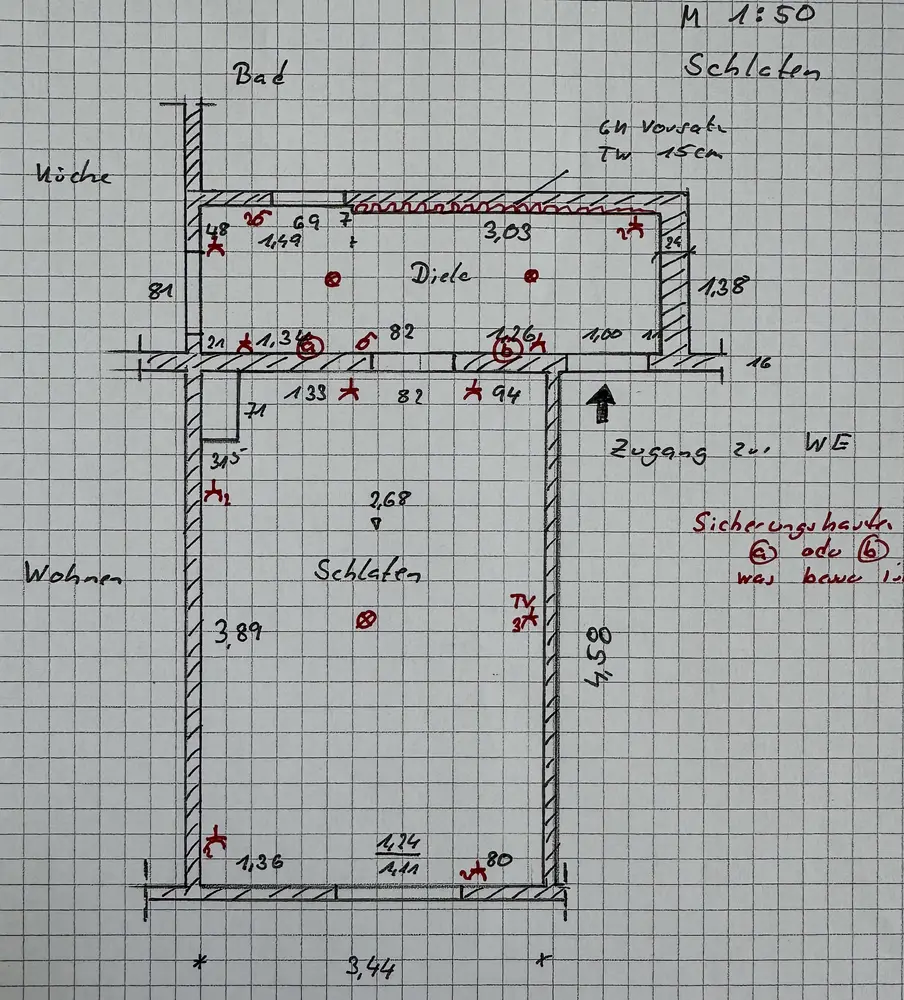 M 1:50
Schlafen
Bad
GK Vorsatz
TW 15cm
Küche
48
25
69
7
1,49
3,03
2
24
Diele
81
1,38
21
1,34
a
82
1,26
b
1,00
11
16
133
82
94
71
Zugang zur WE
315
2
2,68
Sicherungskasten
a oder b
Wohnen
Schlafen
TV
3
3,89
4,58
2
1,36
1,24
1,11
2
80
3,44